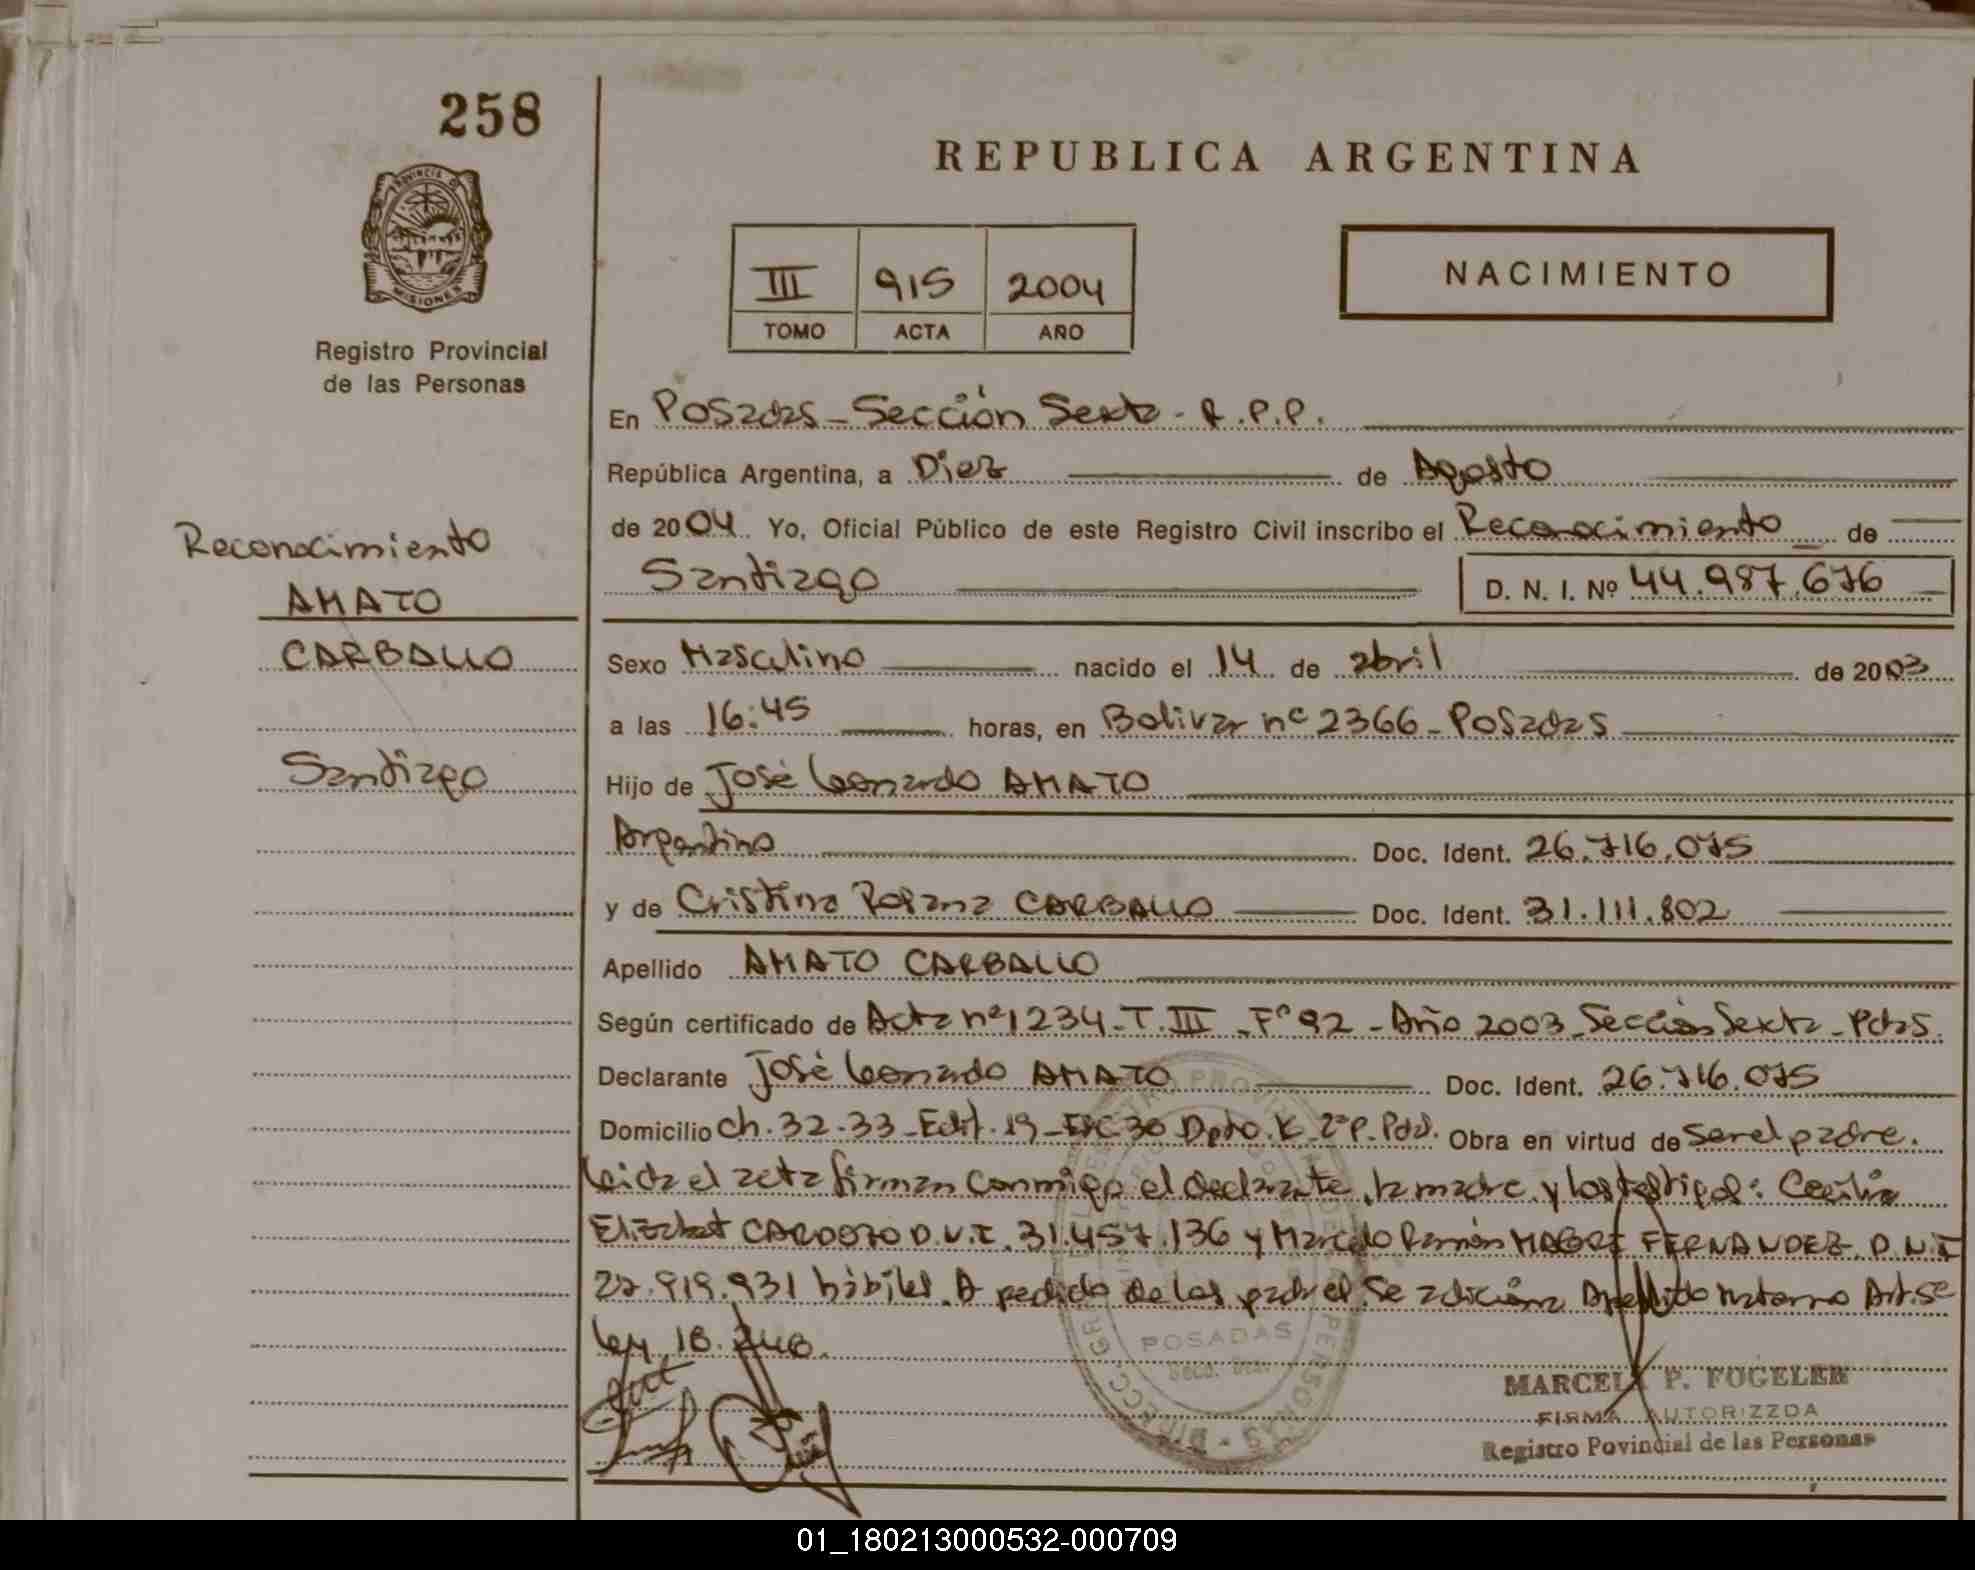 258
PROVINCIA DE
MISIONES
Registro Provincial
de las Personas
Reconocimiento
AMATO
CARBALLO
Santiago
REPUBLICA ARGENTINA
III 915 2004
TOMO ACTA AÑO
NACIMIENTO
En Posadas - Sección Sexta - R.P.P.
República Argentina, a Diez de Agosto
de 2004 Yo, Oficial Público de este Registro Civil inscribo el Reconocimiento de
Santiago D. N. I. Nº 44.987.676
Sexo Masculino nacido el 14 de abril de 2003
a las 16:45 horas, en Bolivar nº 2366 - Posadas
Hijo de José Leonardo AMATO
Argentino Doc. Ident. 26.716.075
y de Cristina Rosana CARBALLO Doc. Ident. 31.111.802
Apellido AMATO CARBALLO
Según certificado de Acta nº 1234 - T. III - Fº 92 - Año 2003 - Sección Sexta - Pdas.
Declarante José Leonardo AMATO Doc. Ident. 26.716.075
Domicilio Ch. 32-33 - Edif. 19 - 30 Dpto. K 2º P. Obra en virtud de ser el padre.
Leida el acta firman conmigo el declarante, la madre y los testigos: Cecilia
Elizabet CARDOZO D.N.I. 31.457.136 y Marcelo Ramón FERNANDEZ D.N.I
27.919.931 hábiles. A pedido de los padres se adiciona Apellido Materno Art. 5º
Ley 18.248.
POSADAS
MARCELA P. FOGELER
FIRMA AUTORIZZDA
Registro Povincial de las Personas
01_180213000532-000709